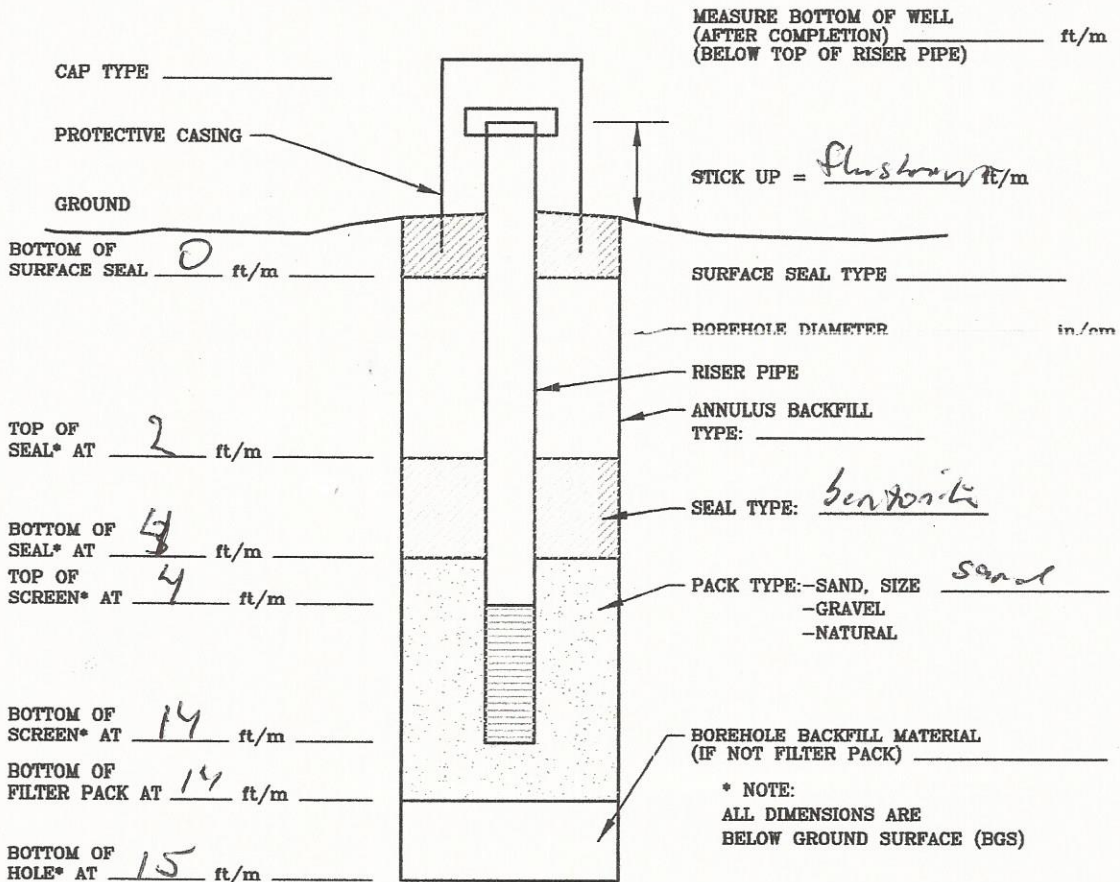 MEASURE BOTTOM OF WELL
(AFTER COMPLETION) ft/m
(BELOW TOP OF RISER PIPE)
CAP TYPE
PROTECTIVE CASING
STICK UP = flushmount ft/m
GROUND
BOTTOM OF
SURFACE SEAL 0 ft/m
SURFACE SEAL TYPE
BOREHOLE DIAMETER in/cm
RISER PIPE
ANNULUS BACKFILL
TYPE:
TOP OF
SEAL* AT 2 ft/m
SEAL TYPE: bentonite
BOTTOM OF
SEAL* AT ft/m
TOP OF
SCREEN* AT 4 ft/m
PACK TYPE:-SAND, SIZE sand
-GRAVEL
-NATURAL
BOTTOM OF
SCREEN* AT 14 ft/m
BOREHOLE BACKFILL MATERIAL
(IF NOT FILTER PACK)
BOTTOM OF
FILTER PACK AT 14 ft/m
* NOTE:
ALL DIMENSIONS ARE
BELOW GROUND SURFACE (BGS)
BOTTOM OF
HOLE* AT 15 ft/m